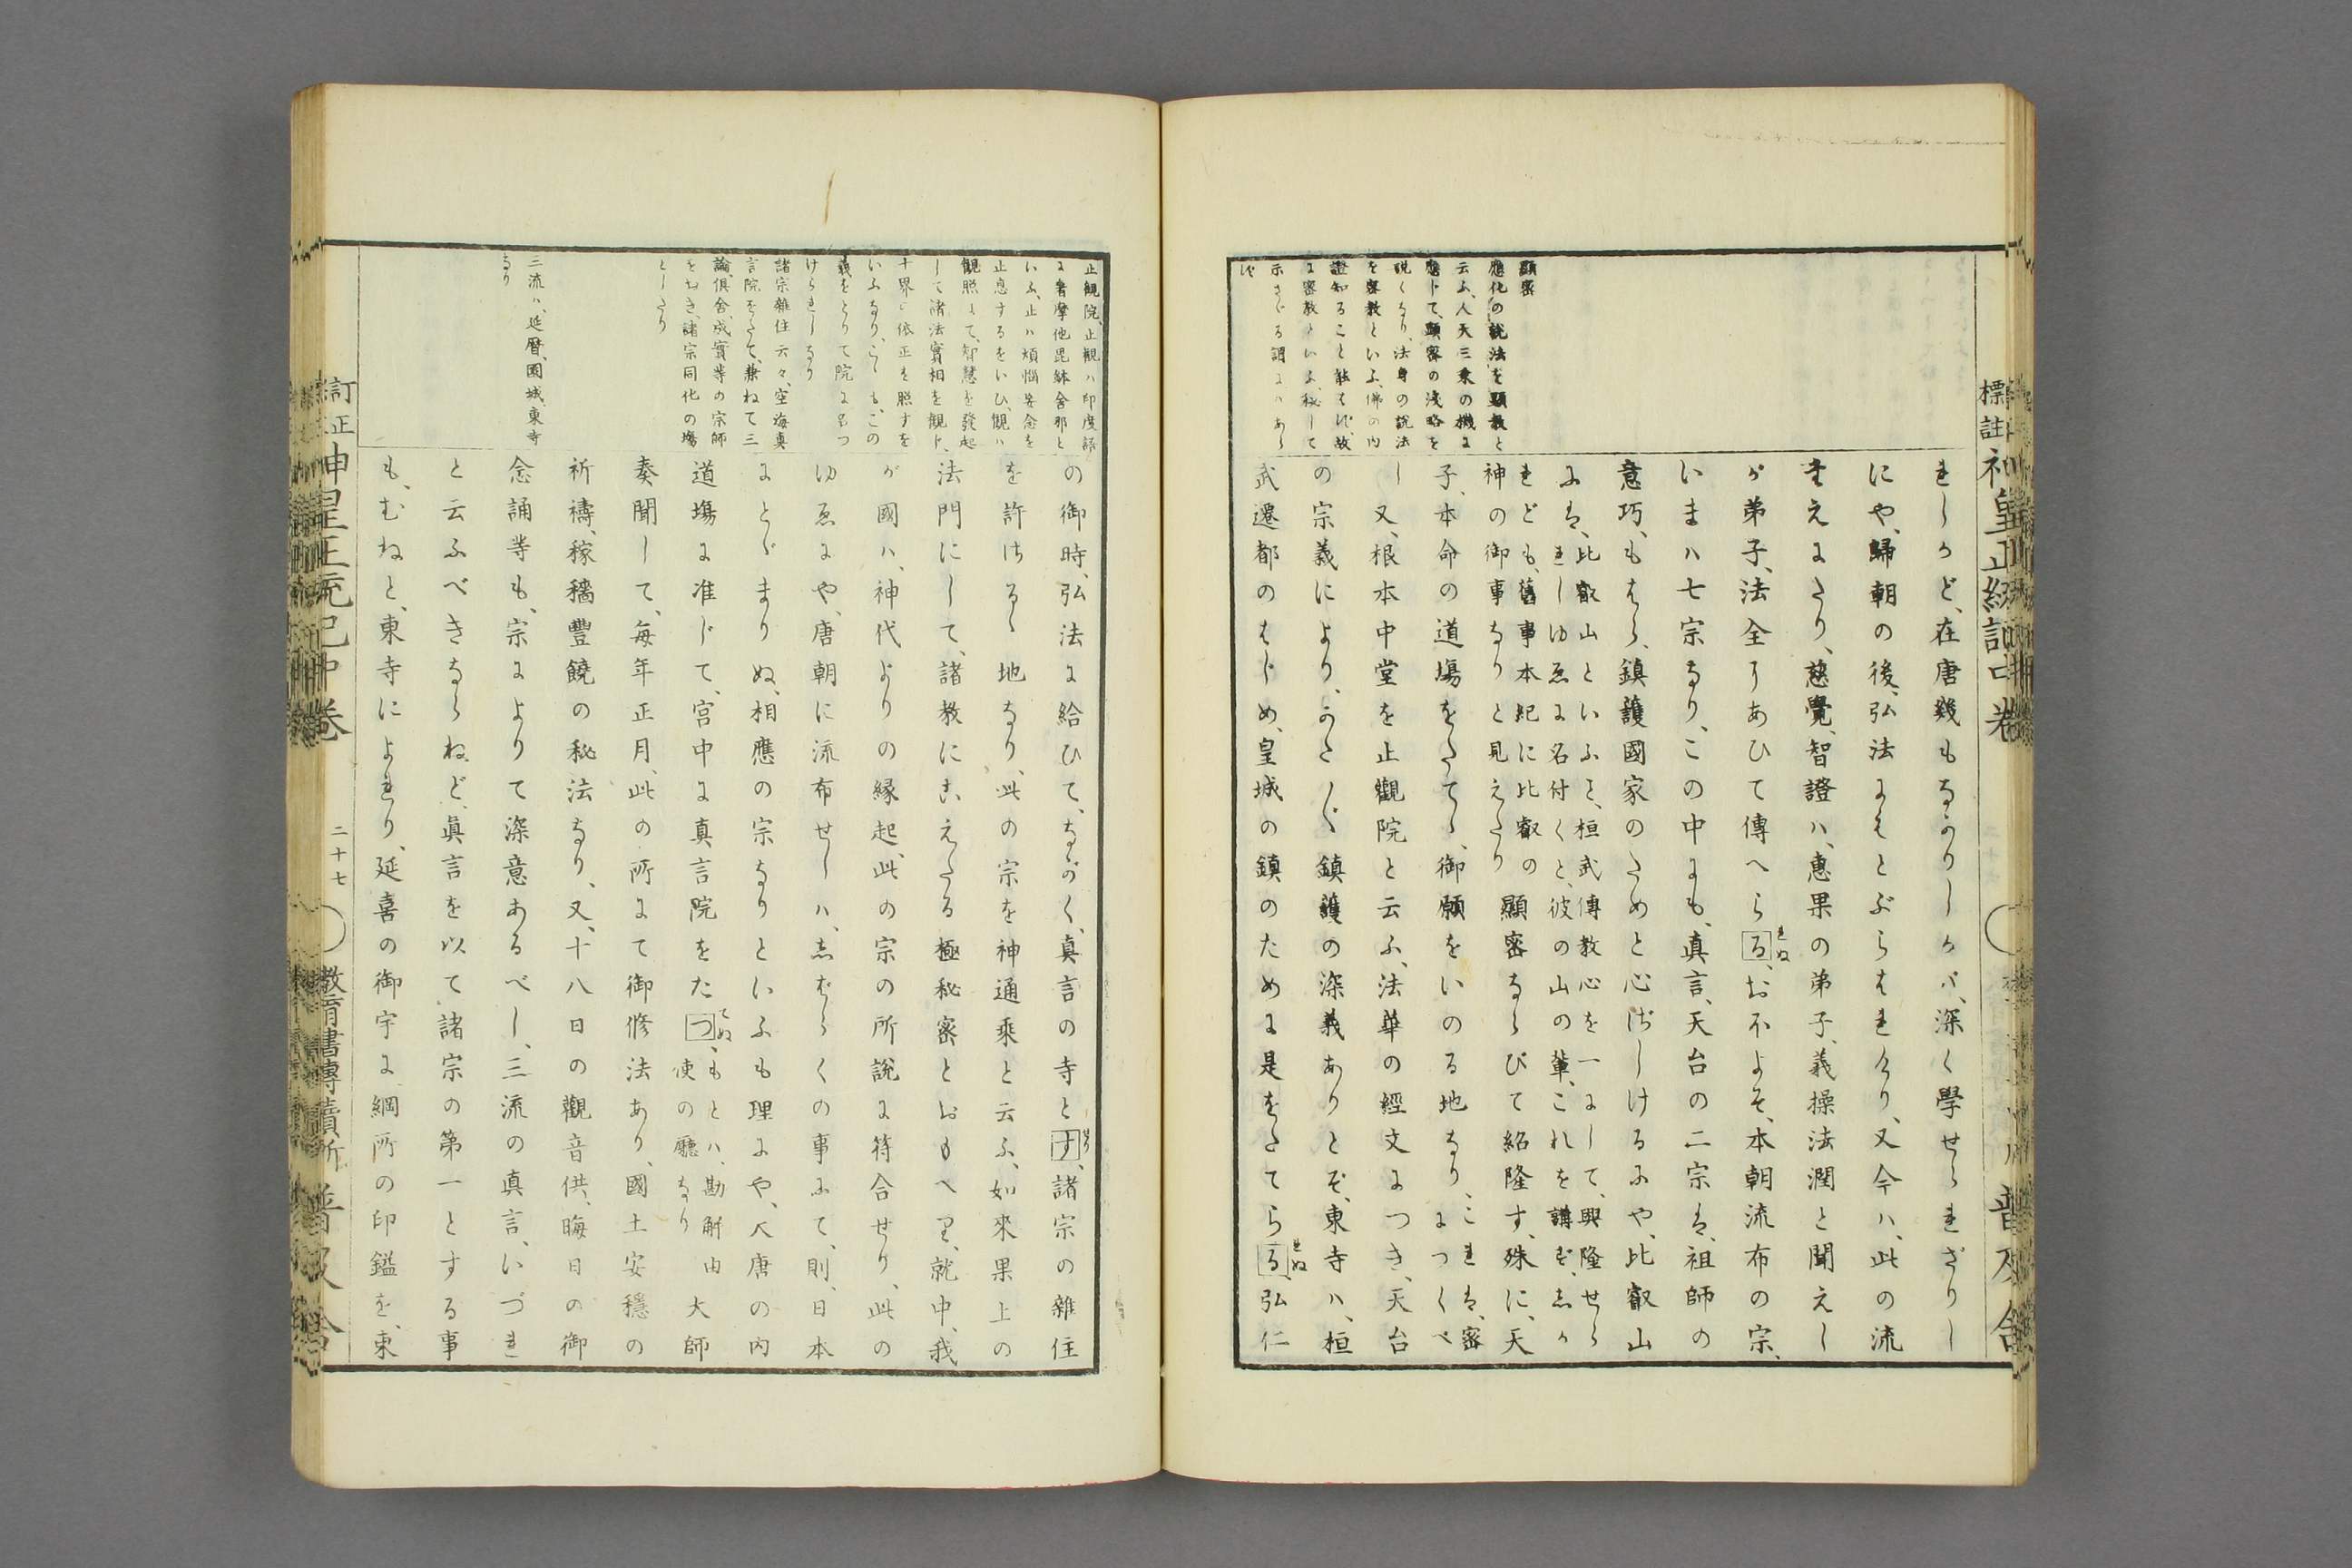 標註 神皇正統記中卷 普及舍
顯密
應化の說法を顯教と
云ふ、人天三乘の機に
應じて、顯密の淺略を
說くなり、法身の說法
を密教といふ、佛の内
證知ること能はず、故
に密教といふ、秘して
示さゞる謂にハあら
ず
れしかど、在唐幾もなかりしかバ、深く學せられざりし
にや、歸朝の後、弘法にもとぶらはれけり、又今ハ、此の流
たえにたり、慈覺、智證ハ、惠果の弟子、義操法潤と聞えし
が弟子、法全にあひて傳へらる れぬ、おほよそ、本朝流布の宗、
いまハ七宗なり、この中にも、真言、天台の二宗は、祖師の
意巧、もはら、鎮護國家のためと心ざしけるにや、比叡山
にハ、比叡山といふは、桓武傳教心を一にして、興隆せら
れしゆゑに名付くと、彼の山の輩、これを講ず、しか
れども、舊事本紀に比叡の
神の御事なりと見えたり 顯密ならびて紹隆す、殊に、天
子、本命の道場をたてゝ、御願をいのる地なり、これは、密
につくべ
し 又、根本中堂を止觀院と云ふ、法華の經文につき、天台
の宗義により、かた〴〵鎮護の深義ありとぞ、東寺ハ、桓
武遷都のはじめ、皇城の鎮のために是をたてらる れぬ、弘仁
止觀院、止觀ハ印度語
に奢摩他毘鉢舍那と
いふ、止ハ煩惱妄念を
止息するをいひ、觀ハ
觀照して、智慧を發起
して諸法實相を觀じ、
十界の依正を照すを
いふなり、こゝも、この
義をとりて、院に名つ
けられしなり
諸宗雜住云々、空海真
言院をたて、兼ねて三
論、俱舍、成實等の宗師
をおき、諸宗同化の場
としたり
三流ハ、延曆、園城、東寺
なり
の御時、弘法に給ひて、ながく、真言の寺とす せり、諸宗の雜住
を許さゞる地なり、此の宗を神通乘と云ふ、如來果上の
法門にして、諸教にこえたる極秘密とおもへり、就中、我
が國ハ、神代よりの縁起、此の宗の所說に符合せり、此の
ゆゑにや、唐朝に流布せしハ、しばらくの事にて、則、日本
にとゞまりぬ、相應の宗なりといふも理にや、大唐の内
道場に准じて、宮中に真言院をたつ てぬ、もとハ、勘解由
使の廳なり 大師
奏聞して、毎年正月、此の所にて御修法あり、國土安穩の
祈禱、稼穡豐饒の秘法なり、又、十八日の觀音供、晦日の御
念誦等も、宗によりて深意あるべし、三流の真言、いづれ
と云ふべきならねど、眞言を以て諸宗の第一とする事
も、むねと、東寺によれり、延喜の御宇に綱所の印鎰を、東
訂正 神皇正統記中卷 二十七 教育書專賣所 普及舍